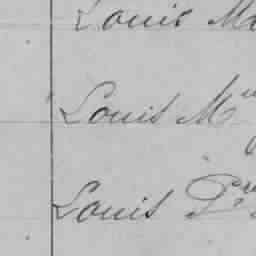 Louis M
Louis M
Louis P